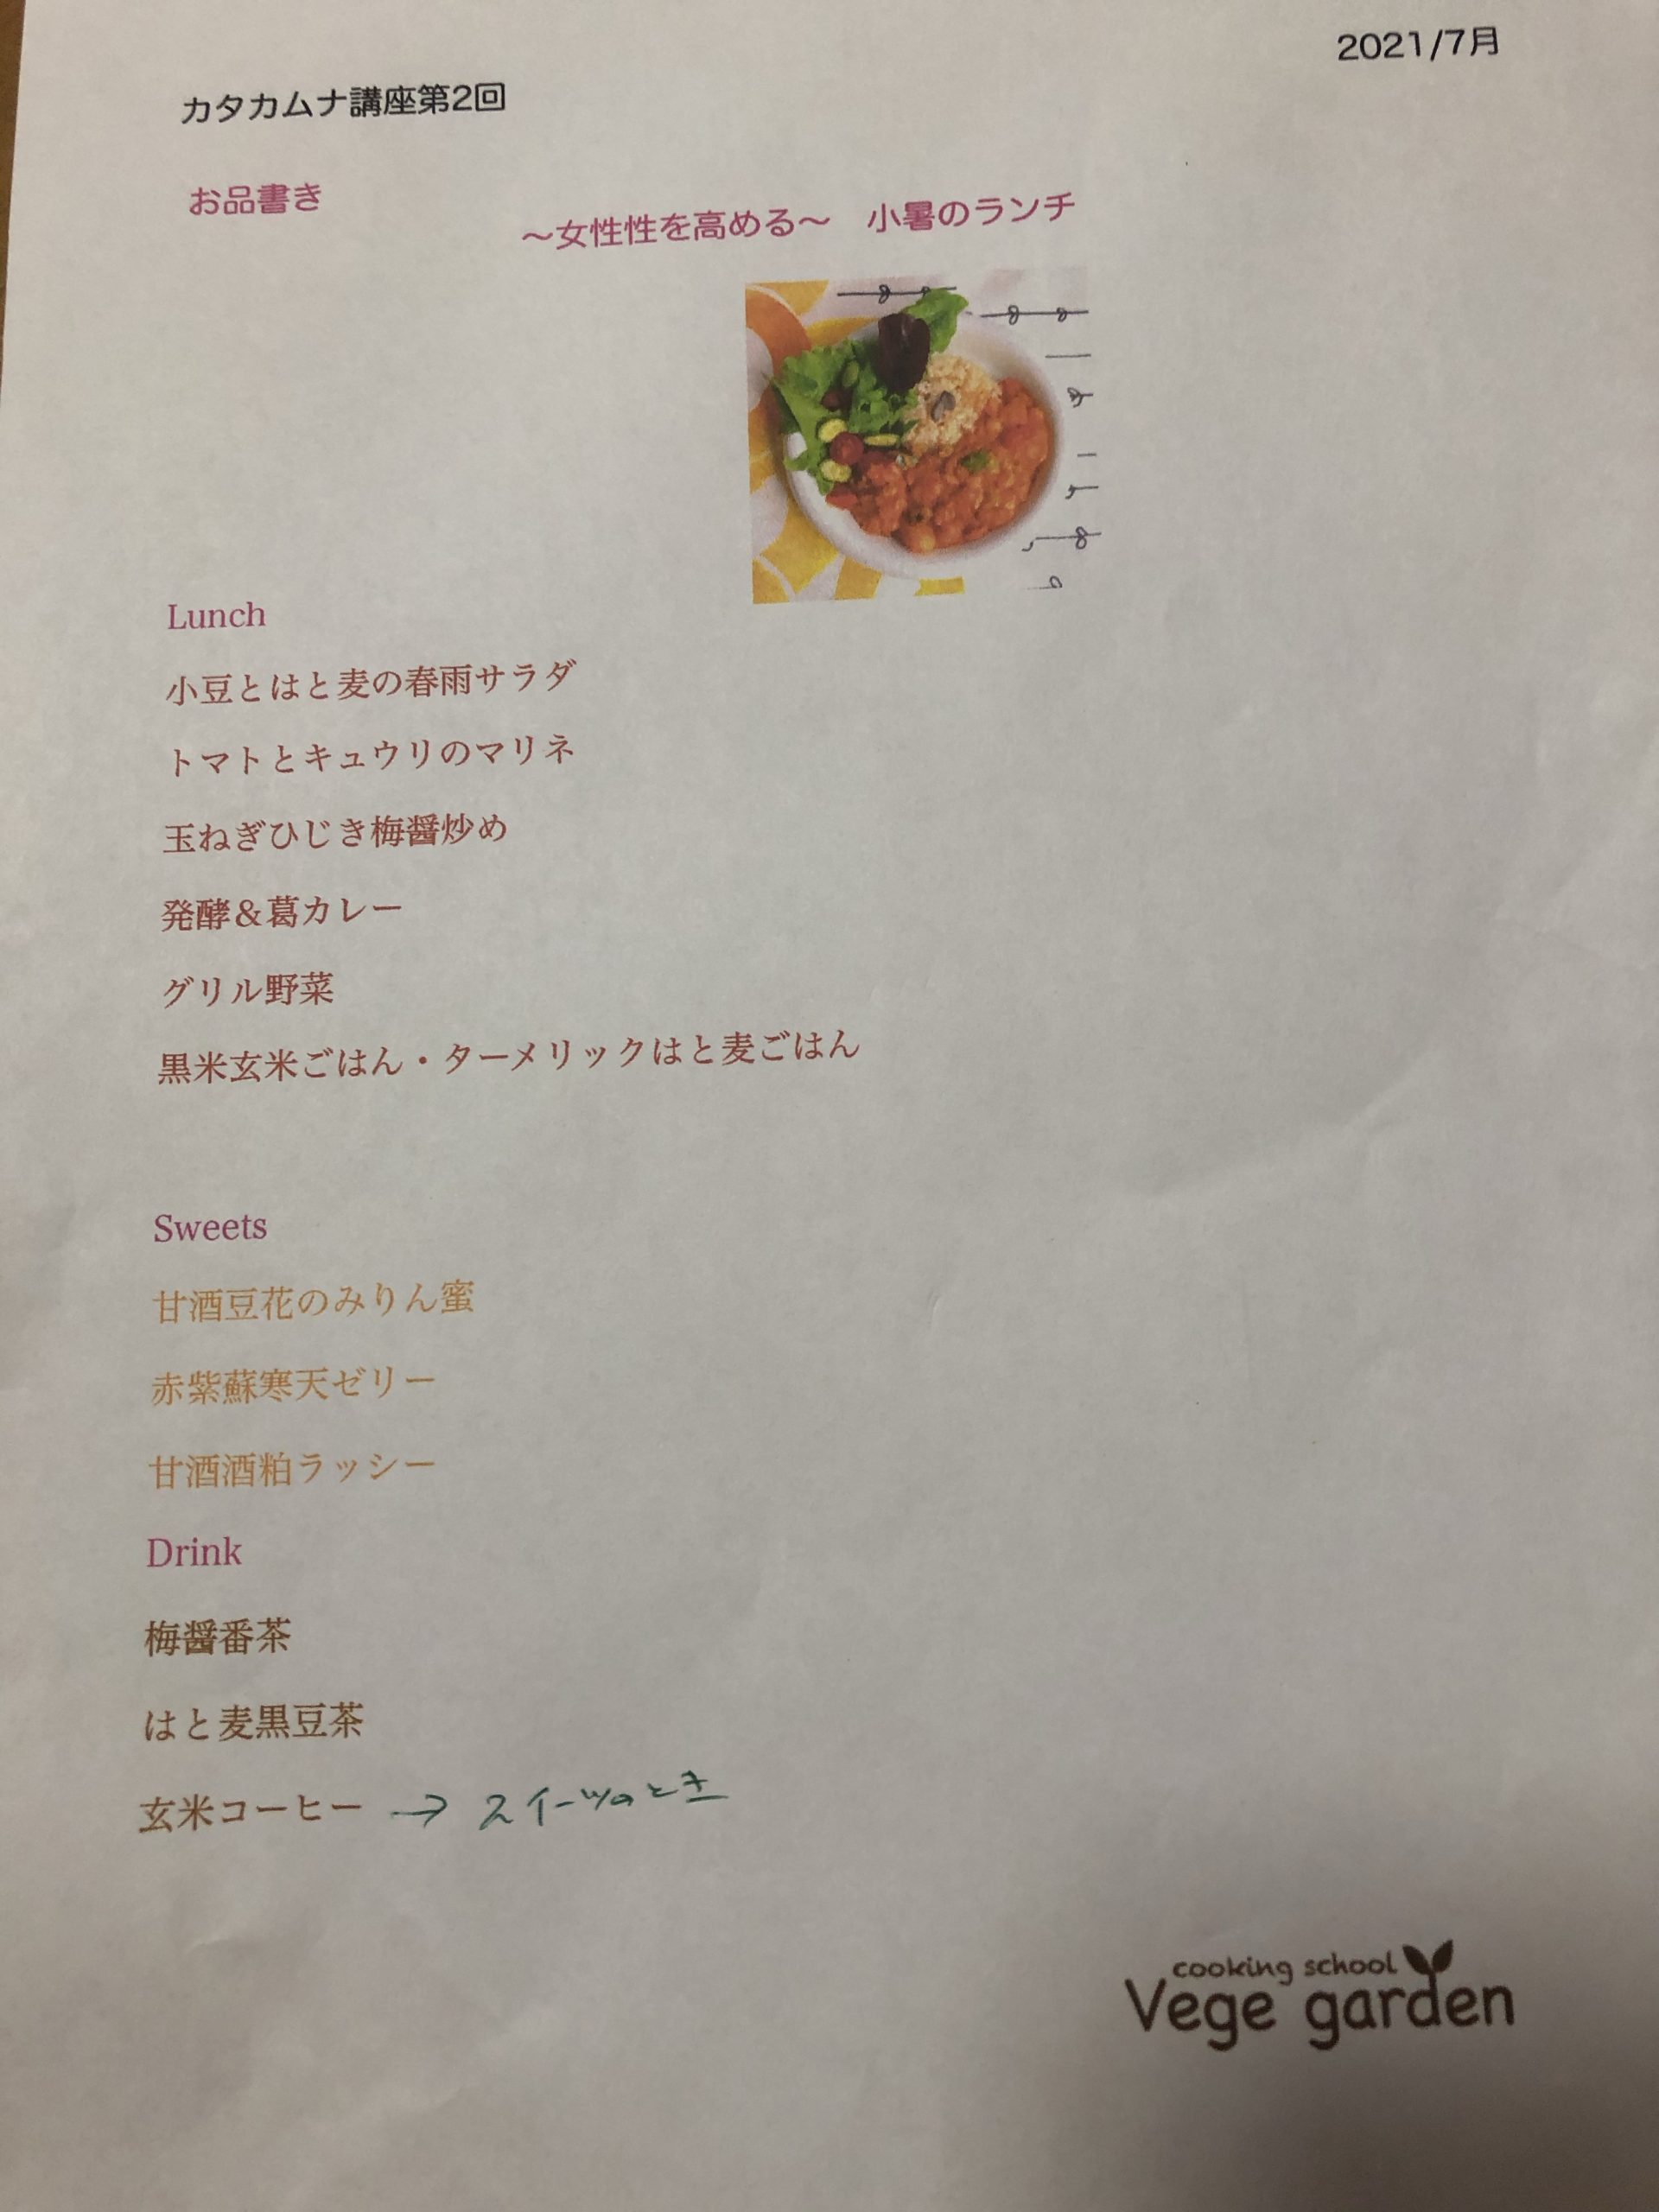 2021/7月
カタカムナ講座第2回
お品書き
～女性性を高める～　小暑のランチ
Lunch
小豆とはと麦の春雨サラダ
トマトとキュウリのマリネ
玉ねぎひじき梅醤炒め
発酵＆葛カレー
グリル野菜
黒米玄米ごはん・ターメリックはと麦ごはん
Sweets
甘酒豆花のみりん蜜
赤紫蘇寒天ゼリー
甘酒酒粕ラッシー
Drink
梅醤番茶
はと麦黒豆茶
玄米コーヒー → スイーツのとき
cooking school
Vege garden